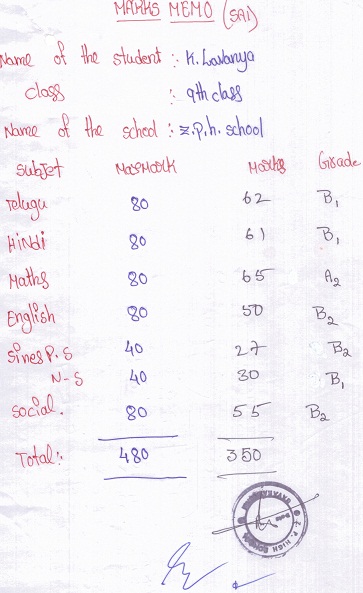 MARKS MEMO (SA1)
Name of the student : K. Lavanya
class : 9th class
Name of the school : Z.p.h. school
Subjet MaxMark Marks Grade
Telugu 80 62 B1
Hindi 80 61 B1
Maths 80 65 A2
English 80 50 B2
Sines P.S 40 27 B2
N-S 40 30 B1
Social. 80 55 B2
Total:- 480 350
Z.P. HIGH SCHOOL